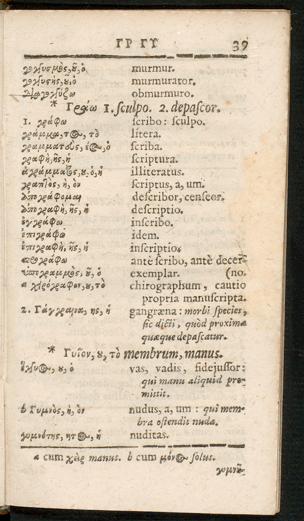 ΓΡ ΓΥ 39
γογγυσμὸς, ȣ͂, ὁ murmur.
γογγυστὴς, ȣ͂, ὁ murmurator.
διαγογγύζω obmurmuro.
* Γράω 1. sculpo. 2. depascor.
1. γράφω scribo: sculpo.
γράμμα, τος, τὸ litera.
γραμματεὺς, έως, ὁ scriba.
γραφὴ, ῆς, ἡ scriptura.
ἀγράμματος, ȣ, ὁ, ἡ illiteratus.
γραπτὸς, ὴ, ὸν scriptus, a, um.
ἀπογράφομαι describor, censeor.
ἀπογραφὴ, ῆς, ἡ descriptio.
ἐγγράφω inscribo.
ἐπιγράφω idem.
ἐπιγραφὴ, ῆς, ἡ inscriptio.
προγράφω antè scribo, antè decer-
ὑπογραμμὸς, ȣ͂, ὁ exemplar. (no.
a χειρόγραφον, ȣ, τὸ chirographum, cautio
propria manuscripta.
2. Γάγγραινα, ης, ἡ gangræna: morbi species,
sic dicti, quòd proxima
quæque depascatur.
* Γυῖον, ȣ, τὸ membrum, manus.
ἔγγυος, ȣ, ὁ vas, vadis, fidejussor:
qui manu aliquid pro-
mittit.
b Γυμνὸς, ὴ, ὸν nudus, a, um: qui mem-
bra ostendit nuda.
γυμνότης, ητος, ἡ nuditas.
a cum χεὶρ manus. b cum μόνος solus.